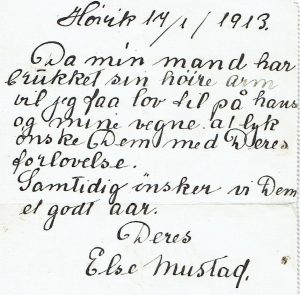 Høvik 14/1/1913.
Da min mand har
brukket sin høire arm
vil jeg faa lov til på hans
og mine vegne at lyk
ønske Dem med Deres
forlovelse.
Samtidig ønsker vi Dem
et godt aar.
Deres
Else Mustad.